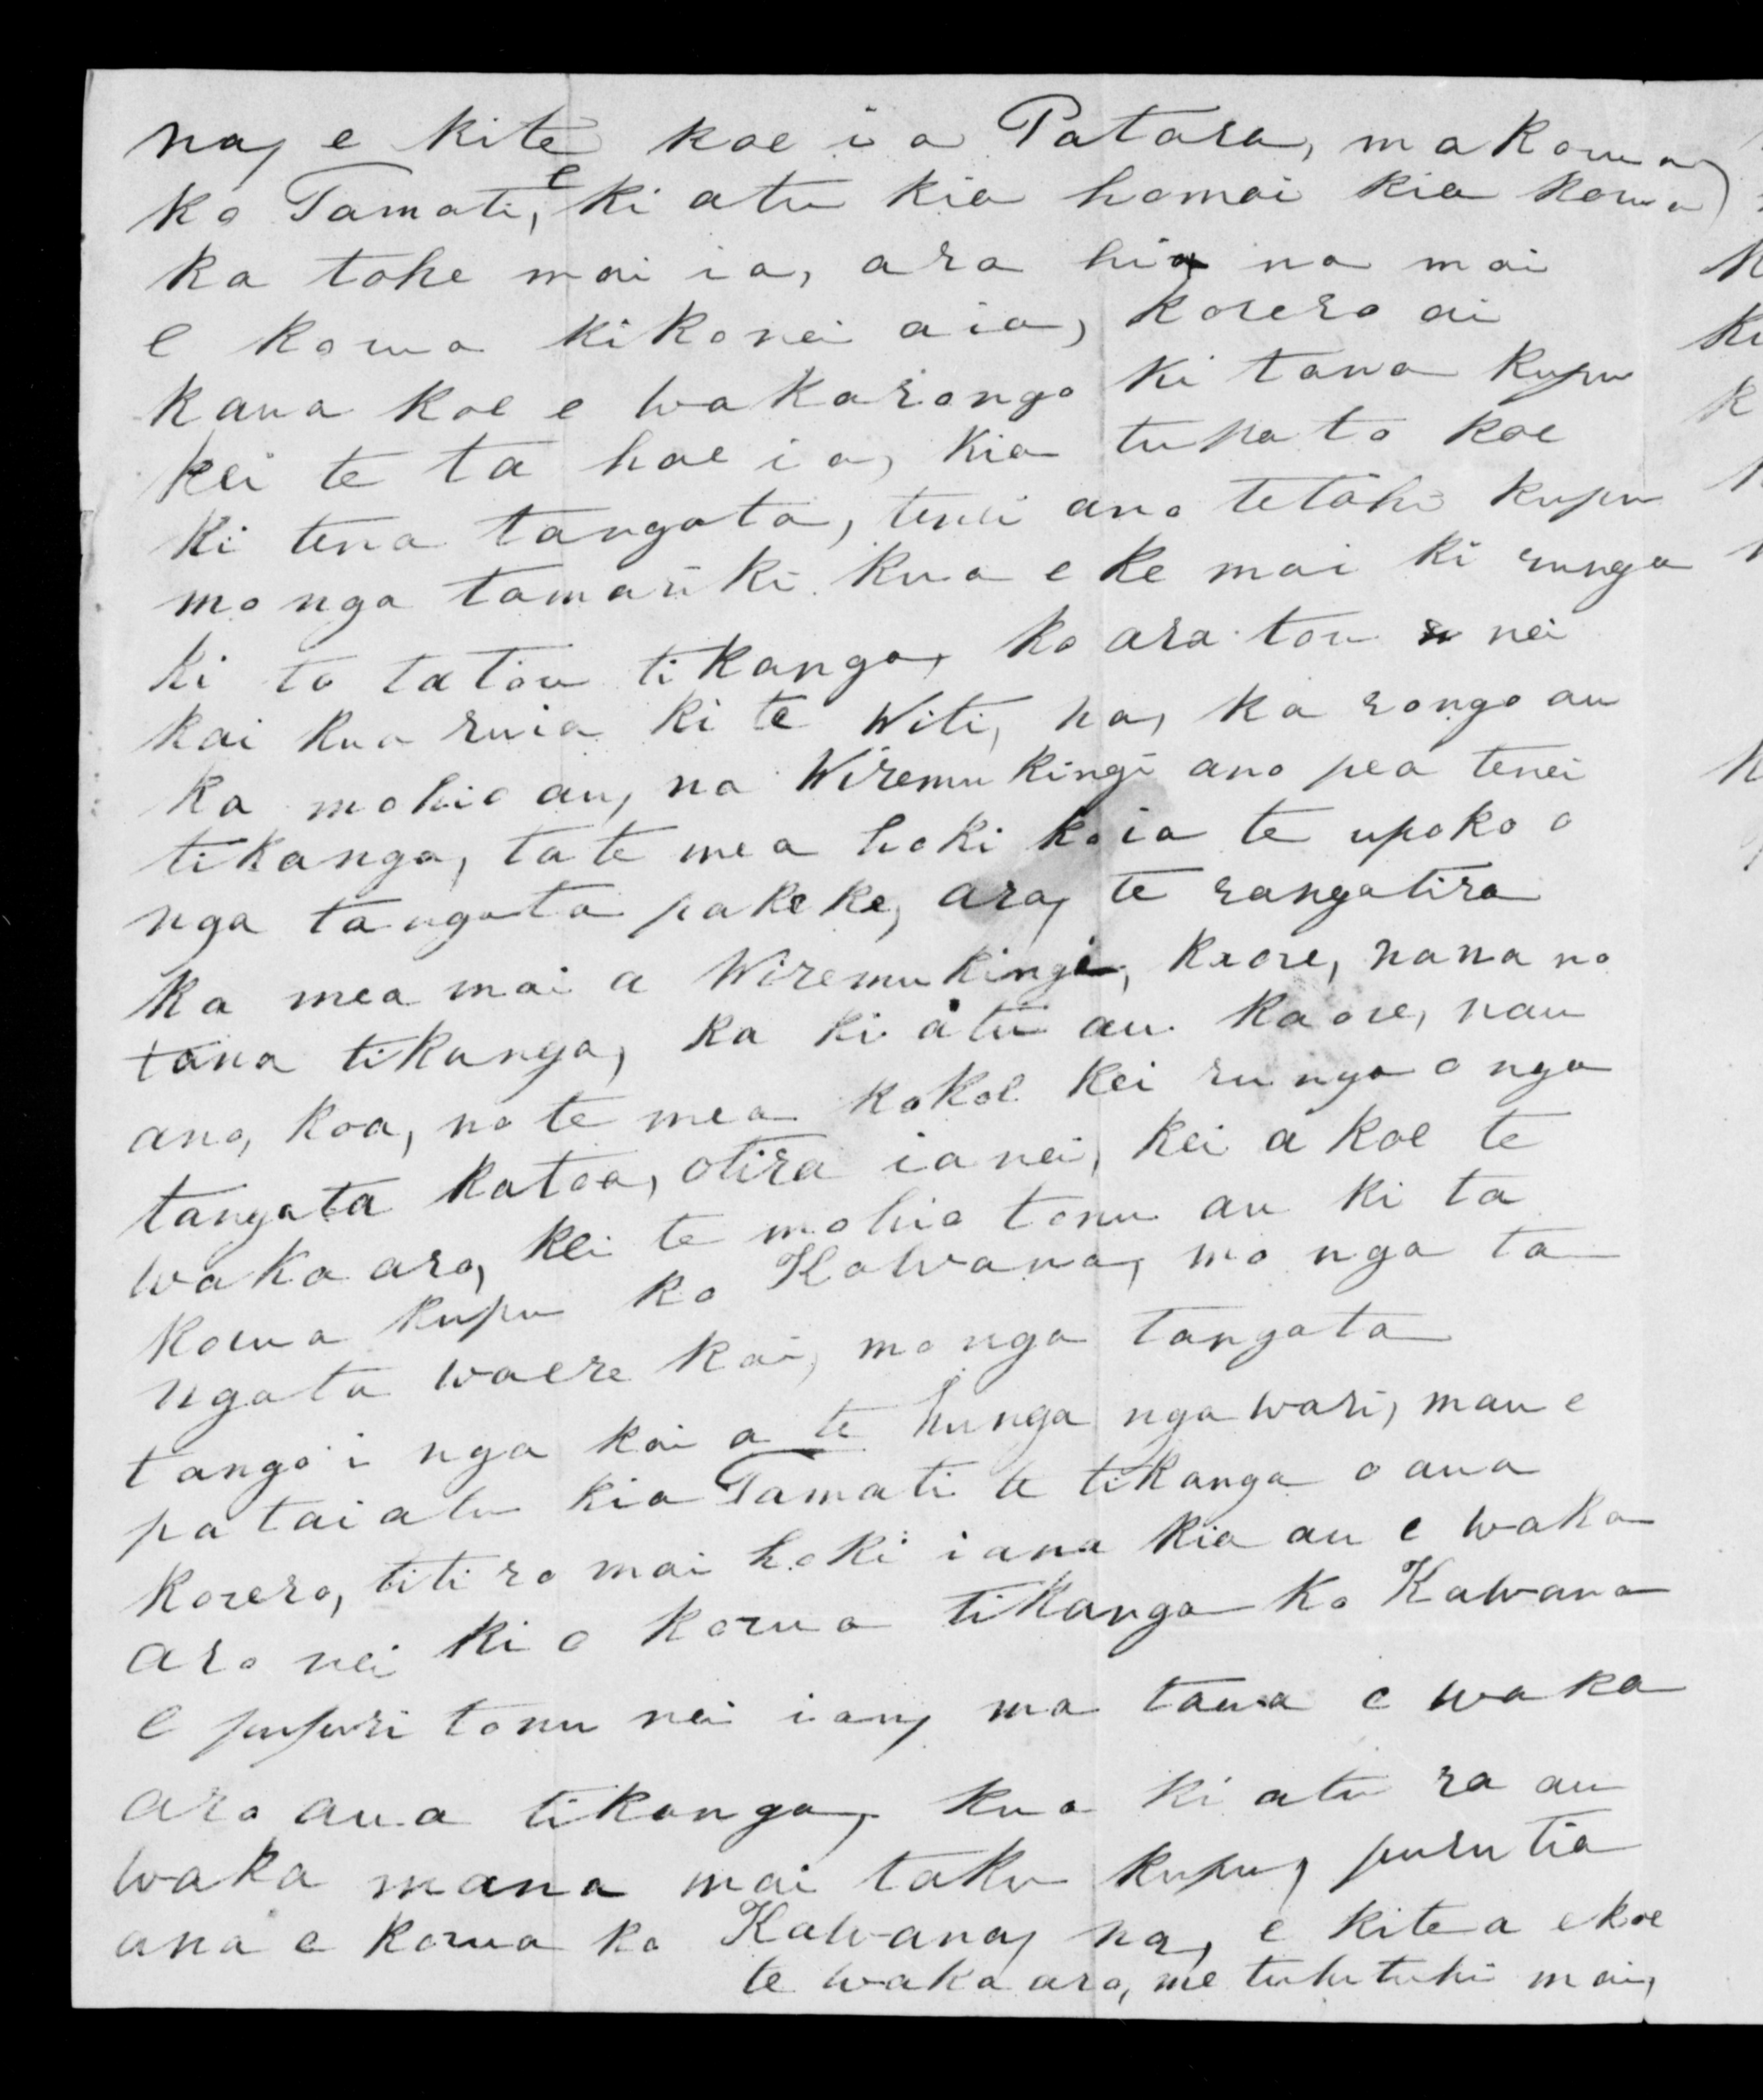 na, e kite koe i a Patara, ma korua
ko Tamati, e ki atu kia homai kia korua
ka tohe mai ia, ara hia na mai
e korua ki konei aia, korero ai
kaua koe e wakarongo ki tana kupu
kei te ta hae ia, kia tupato koe
ki tena tangata, tenei ano tetahi kupu
mo nga tamariki kua eke mai ki runga
ki to tatou tikanga, ko ara tou nei
kai kua ruia ki te Witi, na, ka rongo au
ka mohio au, na Wiremu kingi ano pea tenei
tikanga, ta te mea hoki ko ia te upoko o
nga tangata pakeke, ara, te rangatira
ka mea mai a Wiremu kingi, kaore, nana no
tana tikanga, ka ki atu au kaore, nau
ano, koa, no te mea ko koe kei runga o nga
tangata katoa, otira ia nei, kei a koe te
waka aro, kei te mohio tonu au ki ta
korua kupu ko Kawana, mo nga ta
ngata waere kai, mo nga tangata
tango i nga kai a te hunga nga wari, mau e
pa tai atu kia Tamati te tikanga o aua
korero, titi ro mai hoki i ana kia au e waka
aro nei ki o korua tikanga ko Kawana
e pupuri tonu nei i au, ma taua e waka
aro aua tikanga, kua ki atu ra au
waka mana mai taku kupu, puru tia
ana e korua ko Kawana, na, e kitea e koe
te waka aro, me tuhi tuhi mai,